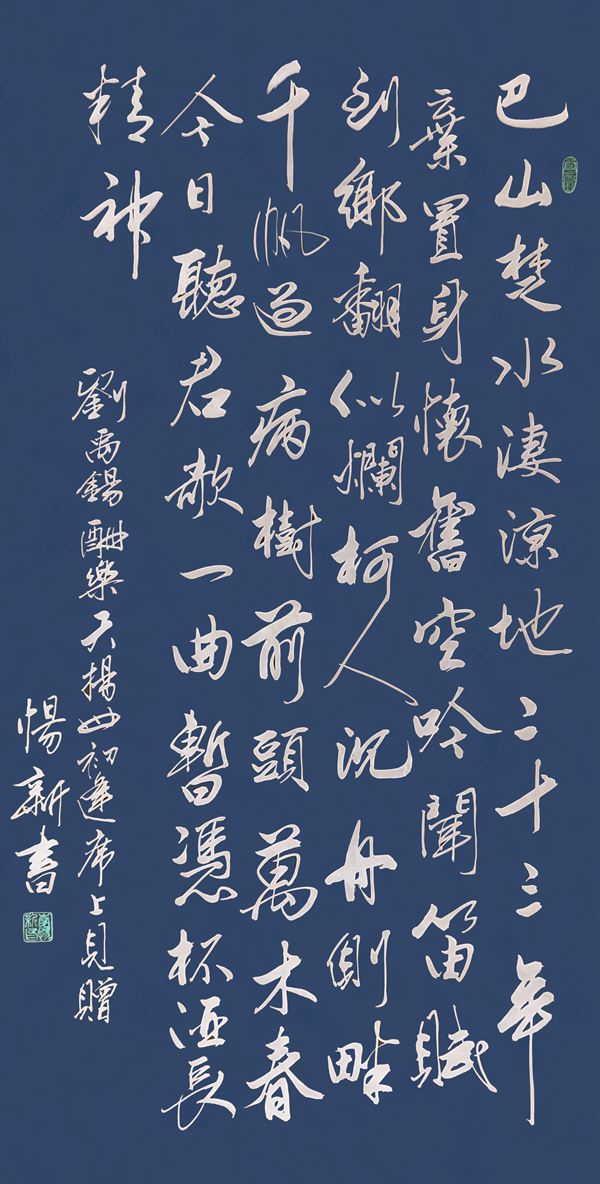 巴山楚水淒涼地二十三年
棄置身懷舊空吟聞笛賦
到鄉翻似爛柯人沉舟側畔
千帆過病樹前頭萬木春
今日聽君歌一曲暫憑杯酒長
精神
劉禹錫酬樂天揚州初逢席上見贈
惕新書